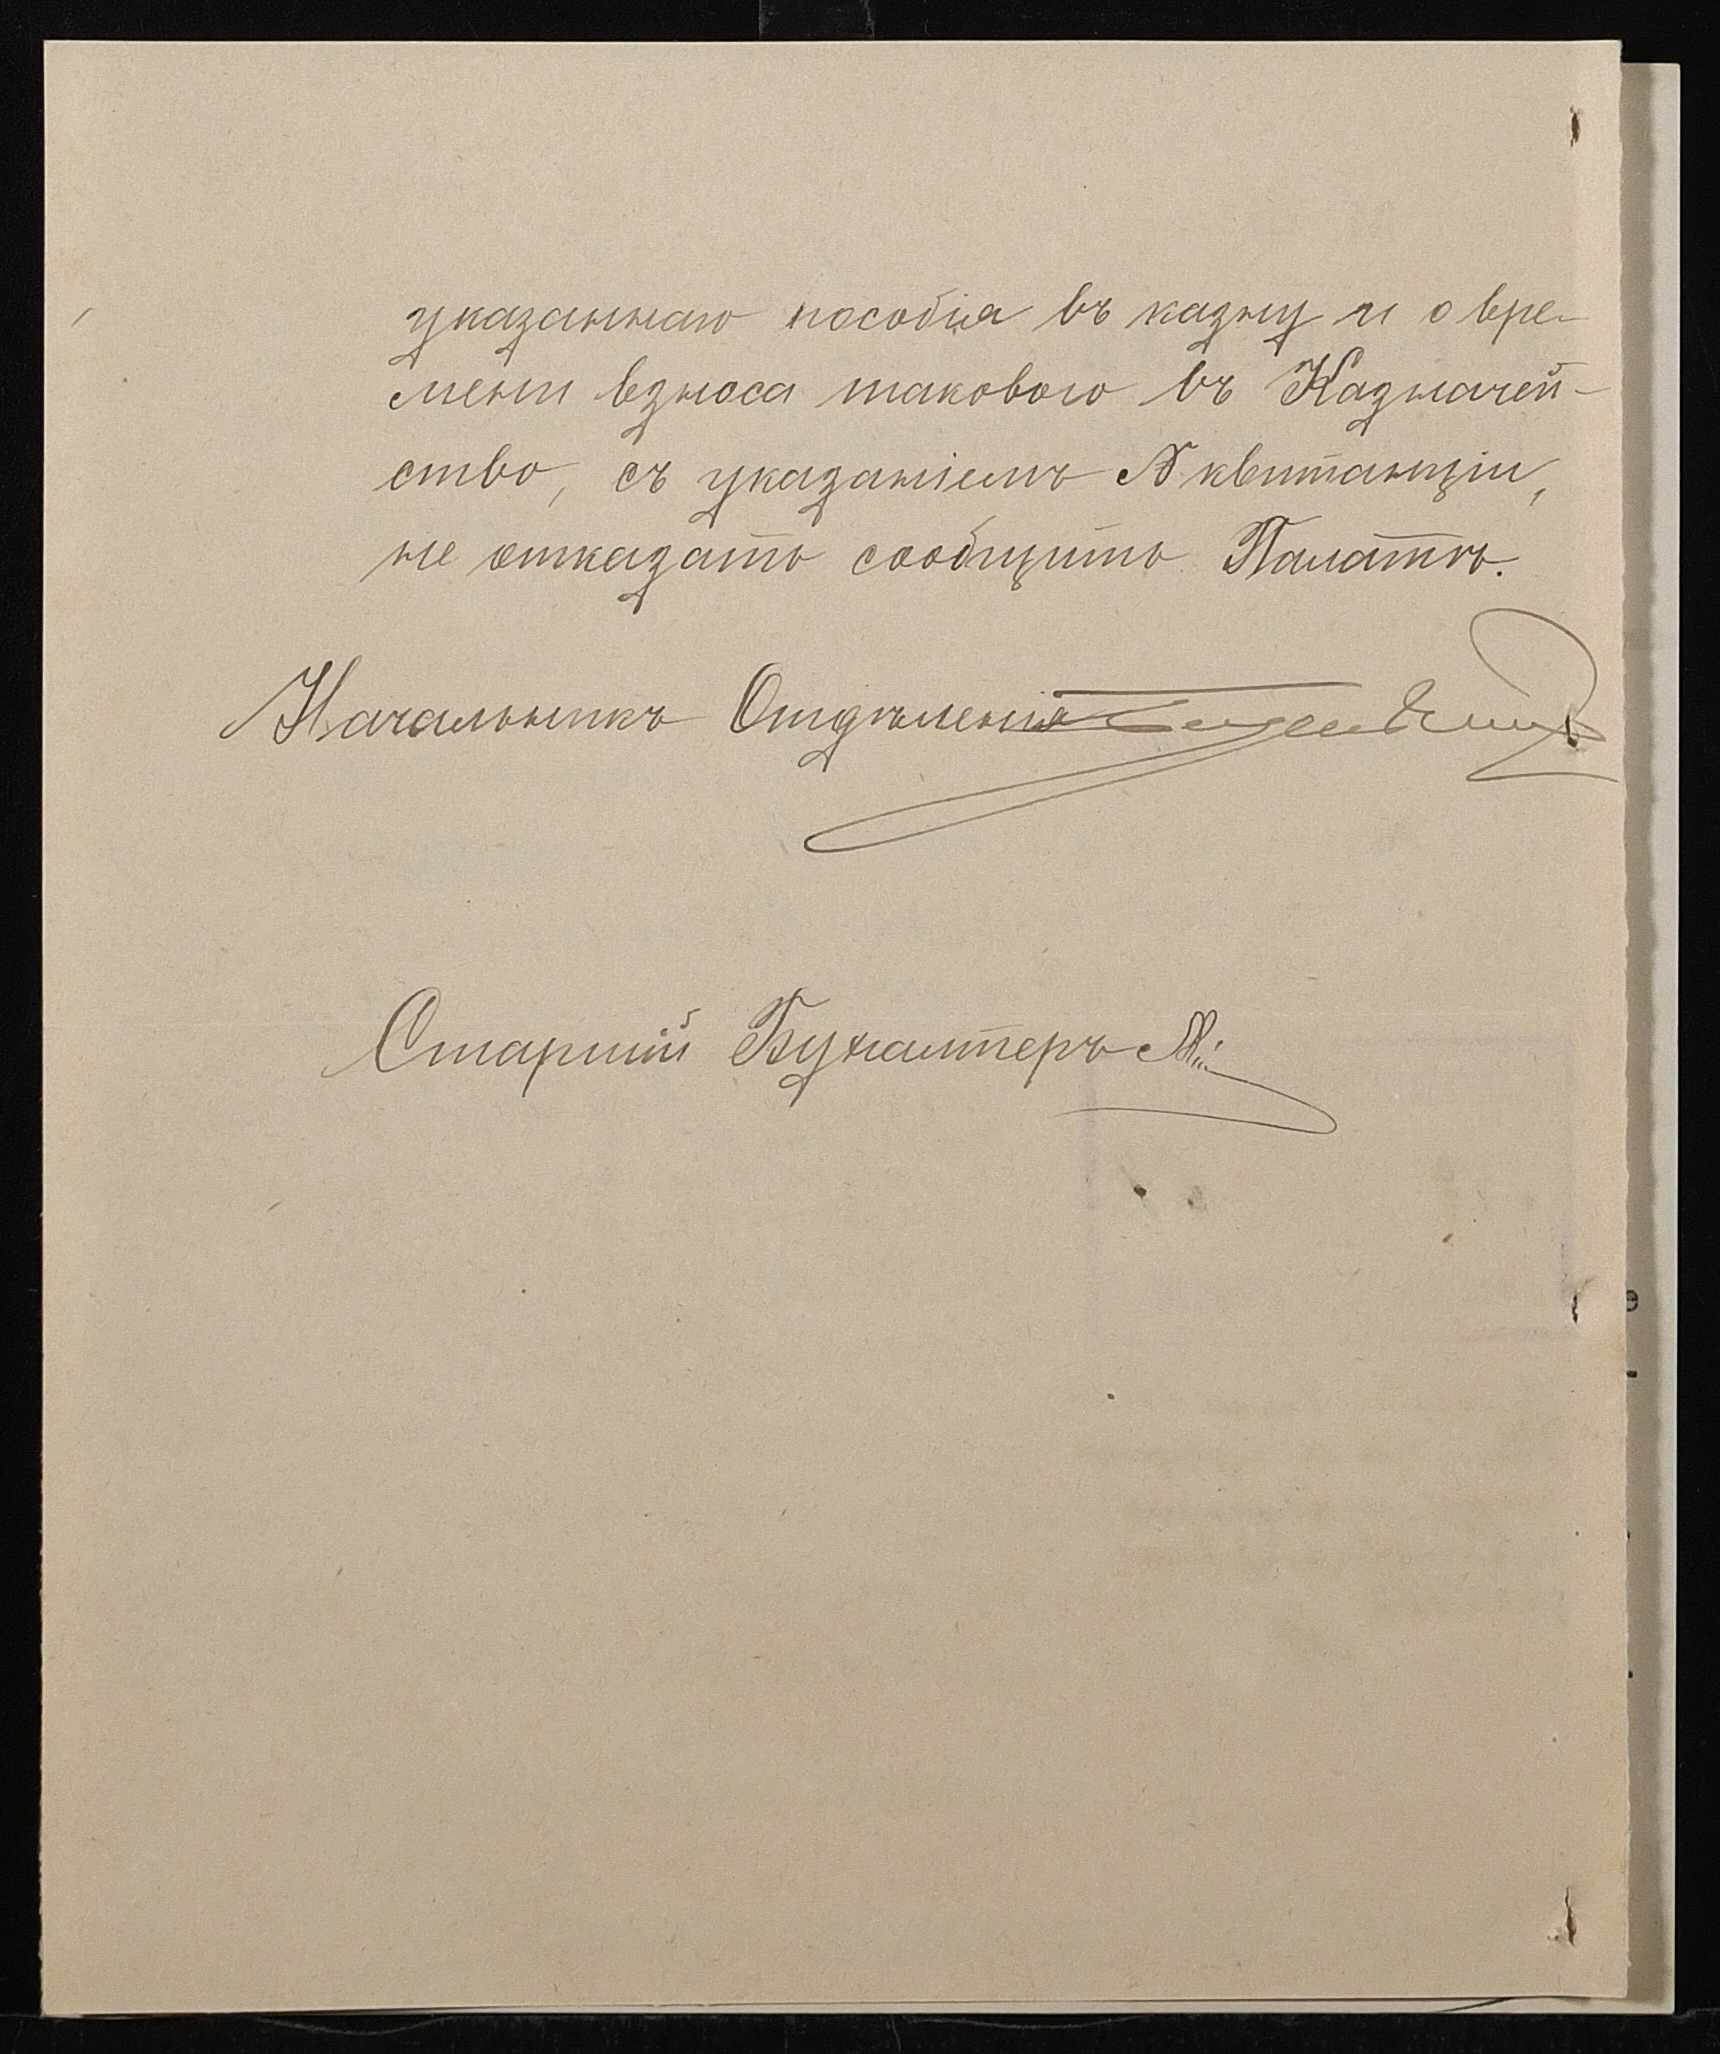 указаннаго пособія въ казну и о вре-
мени взноса таковаго въ Казначей-
ство, съ указаніемъ № квитанціи,
не отказать сообщить Палатѣ.
Начальникъ Отдѣленія
Старшій Бухгалтеръ